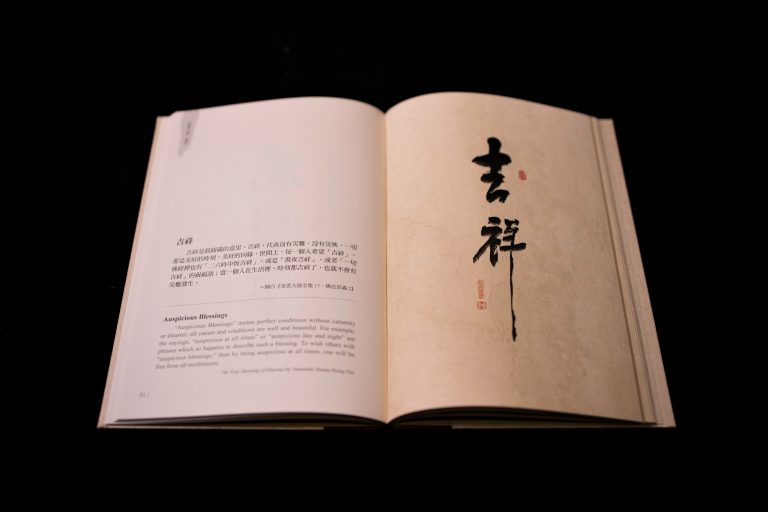 吉祥
吉祥是最圓滿的意思，吉祥，代表沒有災難，沒有災殃，一切
都是美好的時刻，美好的因緣。世間上，每一個人希望「吉祥」，
佛經裡也有「二六時中恆吉祥」，或是「晝夜吉祥」，或者「一切
吉祥」的祝福語；當一個人在生活裡，時刻都吉祥了，也就不會有
災難發生。
～摘自《星雲大師全集17．佛法真義2》
Auspicious Blessings
"Auspicious Blessings" means perfect conditions without calamity
or disaster; all causes and conditions are well and beautiful. For example,
the sayings, "auspicious at all times" or "auspicious day and night" are
phrases which so happens to describe such a blessing. To wish others with
"auspicious blessings," then by being auspicious at all times, one will be
free from all misfortunes.
~ The True Meaning of Dharma by Venerable Master Hsing Yun
吉
祥